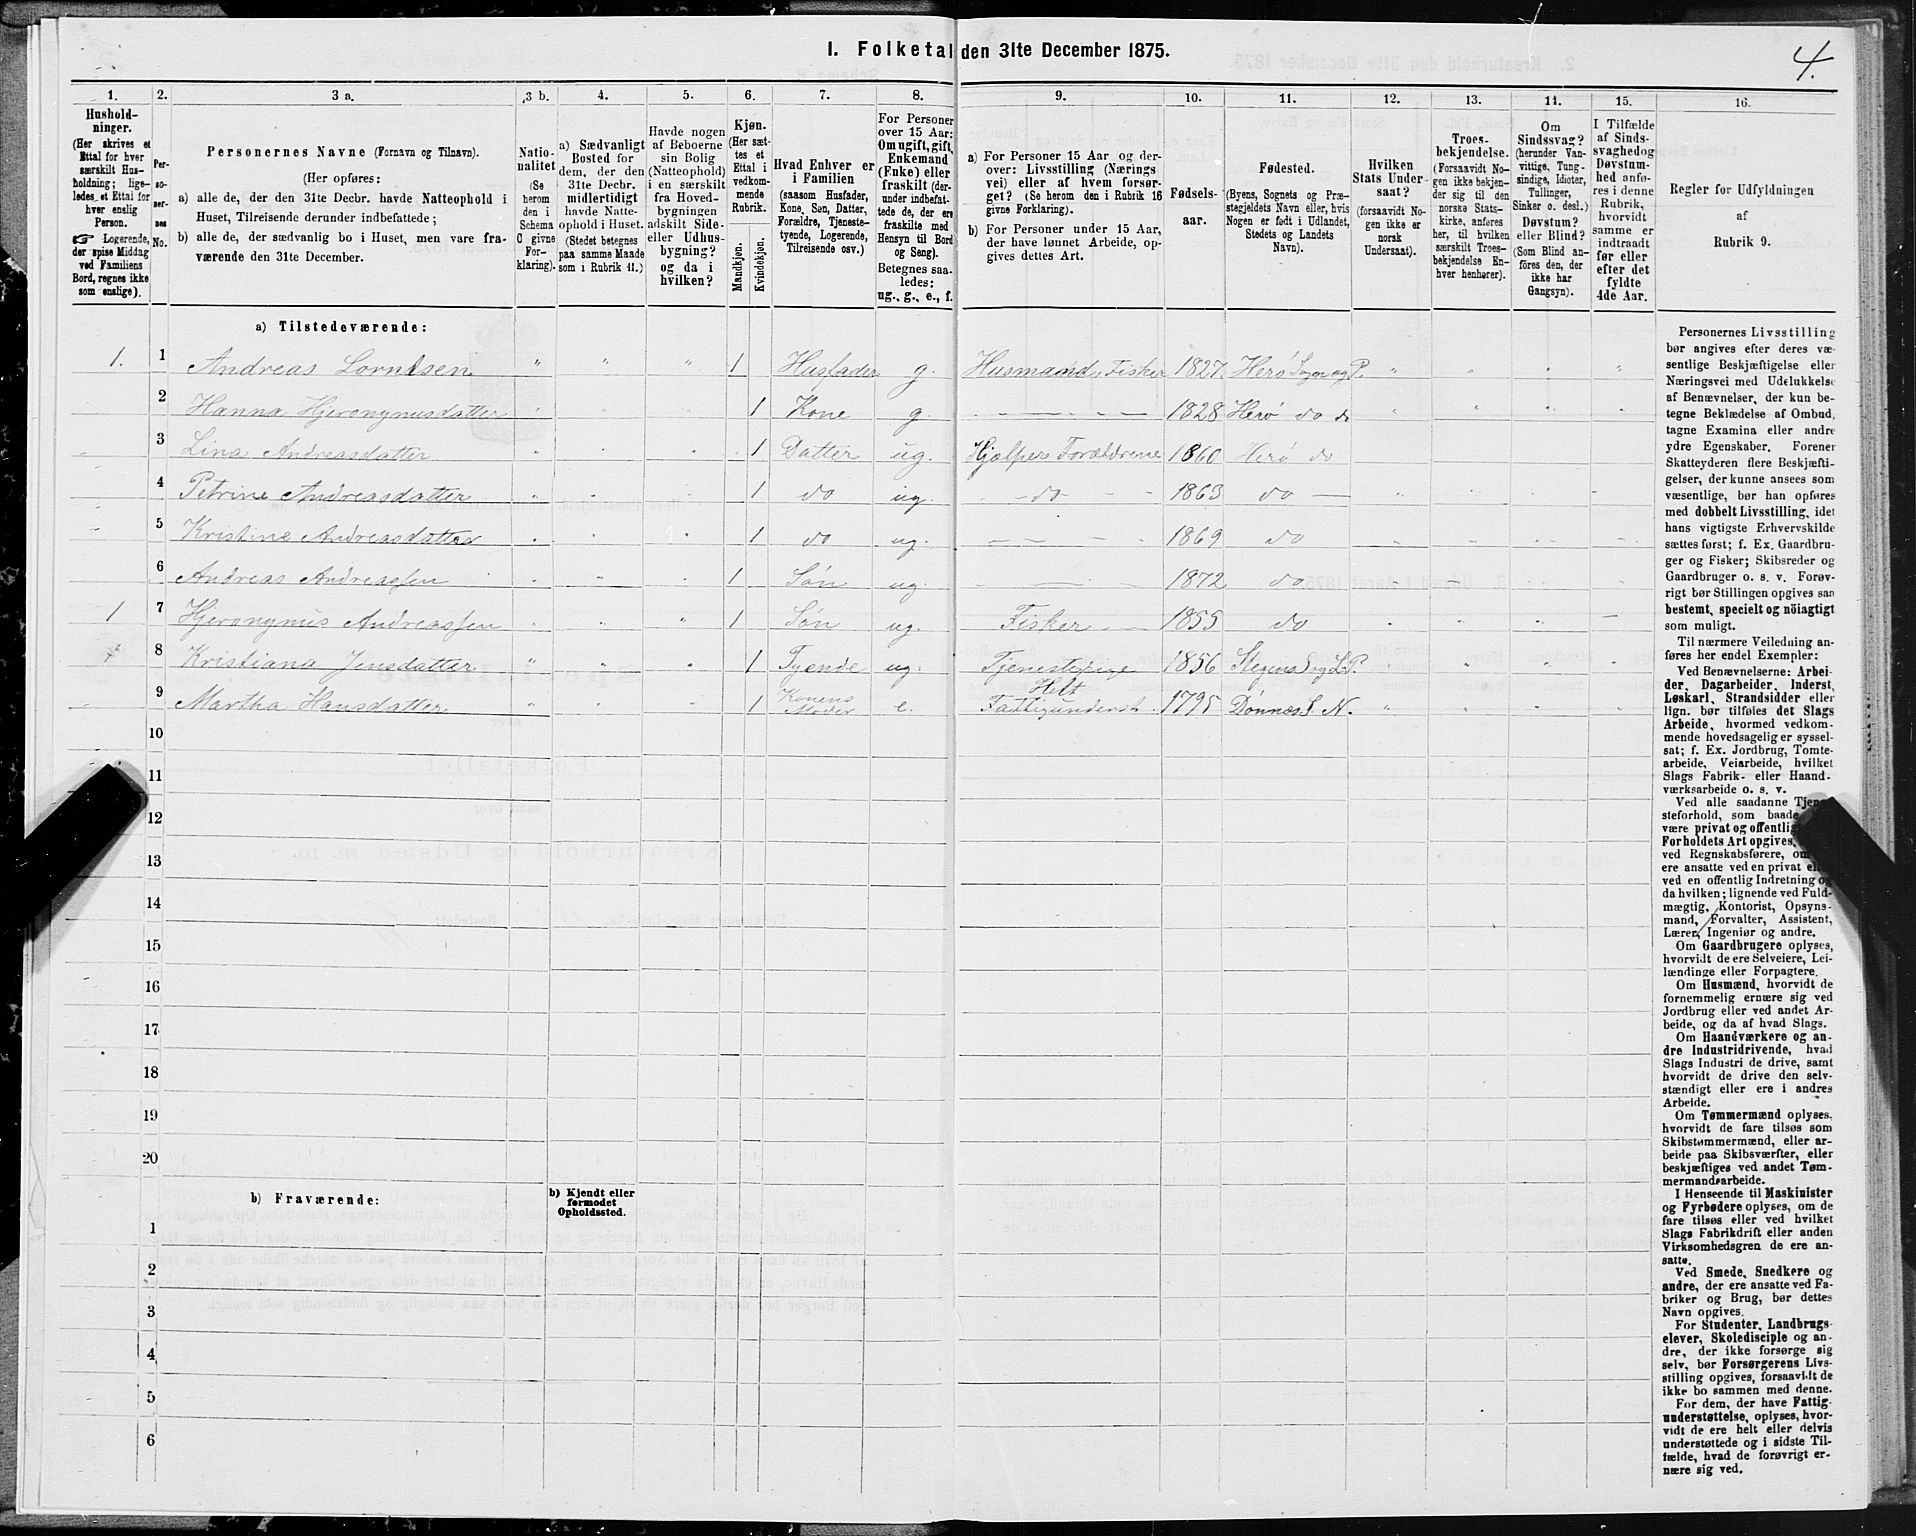 1. Folketal den 31te December 1875.
4.
1.
Hushold-
ninger.
(Her skrives et
Ettal for hver
særskilt Hus-
holdning; lige-
ledes et Ettal for
hver enslig
Person.
☞ Logerende,
der spise Middag
ved Familiens
Bord, regnes ikke
som enslige).
2.
Per-
so-
ner-
nes
No.
3 a.
Personernes Navne (Fornavn og Tilnavn).
(Her opføres:
a) alle de, der den 31te Decbr. havde Natteophold i
Huset, Tilreisende derunder indbefattede;
b) alle de, der sædvanlig bo i Huset, men vare fra-
værende den 31te December.
3 b.
Natio-
nalitet
(Se
herom
den i
Schema
C givne
For-
klaring).
4.
a) Sædvanligt
Bosted for
dem, der den
31te Decbr.
midlertidigt
havde Natte-
ophold i Huset.
(Stedet betegnes
paa samme Maade
som i Rubrik 11.)
5.
Havde nogen
af Beboerne
sin Bolig
(Natteophold)
i en særskilt
fra Hoved-
bygningen
adskilt Side-
eller Udhus-
bygning?
og da i
hvilken?
6.
Kjøn.
(Her sæt-
tes et
Ettal i
vedkom-
mende
Rubrik.
Mandkjøn.
Kvindekjøn.
7.
Hvad Enhver er
i Familien
(saasom Husfader,
Kone, Søn, Datter,
Forældre, Tjeneste-
tyende, Logerende,
Tilreisende osv.)
8.
For Personer
over 15 Aar:
Om ugift, gift,
Enkemand
(Enke) eller
fraskilt (der-
under indbefat-
tede de, der ere
fraskilte med
Hensyn til Bord
og Seng).
Betegnes saa-
ledes:
ug., g., e., f.
9.
a) For Personer 15 Aar og der-
over: Livsstilling (Nærings
vei) eller af hvem forsør-
get? (Se herom den i Rubrik 16
givne Forklaring).
b) For Personer under 15 Aar,
der have lønnet Arbeide, op-
gives dettes Art.
10.
Fødsels-
aar.
11.
Fødested.
(Byens, Sognets og Præ-
stegjeldets Navn eller, hvis
Nogen er født i Udlandet,
Stedets og Landets
Navn).
12.
Hvilken
Stats Under-
saat?
(forsaavidt No-
gen ikke er
norsk
Undersaat).
13.
Troes-
bekjendelse.
(Forsaavidt No-
gen ikke bekjen-
der sig til den
norske Stats-
kirke, anføres
her, til hvilken
særskilt Troes-
bekjendelse En-
hver henhører).
14.
Om
Sindssvag?
(herunder Van-
vittige, Tung-
sindige, Idioter,
Tullinger,
Sinker o. desl.)
Døvstum?
eller Blind?
(Som Blind an-
føres den, der
ikke har
Gangsyn).
15.
I Tilfælde
af Sinds-
svaghed og
Døvstum-
hed anfø-
res i denne
Rubrik,
hvorvidt
samme er
indtraadt
før eller
efter det
fyldte
4de Aar.
16.
Regler for Udfyldningen
af
Rubrik 9.
a) Tilstedeværende:
1. 1 Andreas Lorntsen " " " 1 Husfader g. Husmand, Fisker 1827 Herø Sogn og P. " " " "
2 Hanna Hjeronymusdatter 1 Kone g. 1828 Herø do do
3 Lina Andreasdatter 1 Datter ug. Hjælper Forældrene 1860 Herø do
4 Petrine Andreasdatter 1 do ug. do 1863 do
5 Kristine Andreasdatter 1 do ug. 1869 do
6 Andreas Andreassen 1 Søn ug. 1872 do
1 7 Hjeronymus Andreassen 1 Søn ug. Fisker 1855 do
8 Kristiana Jensdatter 1 Tyende ug. Tjenestepige 1856 Stegens Sog L. P.
9 Martha Hansdatter 1 Konens Moder e. Helt Fattigunderst. 1795 Dønnes S. N.
10
11
12
13
14
15
16
17
18
19
20
b) Fraværende:
b) Kjendt eller
formodet
Opholdssted.
1
2
3
4
5
6
Personernes Livsstilling
bør angives efter deres væ-
sentlige Beskjæftigelse eller
Næringsvei med Udelukkelse
af Benævnelser, der kun be-
tegne Beklædelse af Ombud,
tagne Examina eller andre
ydre Egenskaber. Forener
Skatteyderen flere Beskjæfti-
gelser, der kunne ansees som
væsentlige, bør han opføres
med dobbelt Livsstilling, idet
hans vigtigste Erhvervskilde
sættes først; f. Ex. Gaardbru-
ger og Fisker; Skibsreder og
Gaardbruger o. s. v. Forøv-
rigt bør Stillingen opgives saa
bestemt, specielt og nöiagtigt
som muligt.
Til nærmere Veiledning an-
føres her endel Exempler:
Ved Benævnelserne: Arbei-
der, Dagarbeider, Inderst,
Løskarl, Strandsidder eller
lign. bør tilføies det Slags
Arbeide, hvormed vedkom-
mende hovedsagelig er syssel-
sat; f. Ex. Jordbrug, Tomte-
arbeide, Veiarbeide, hvilket
Slags Fabrik- eller Haand-
værksarbeide o. s. v.
Ved alle saadanne Tjene-
steforhold, som baade
være privat og offentlig
Forholdets Art opgives,
ved Regnskabsførere, om
ere ansatte ved en privat el
ved en offentlig Indretning og
da hvilken; lignende ved Fuld-
mægtig, Kontorist, Opsyns-
mand, Forvalter, Assistent,
Lærer, Ingeniør og andre.
Om Gaardbrugere oplyses,
hvorvidt de ere Selveiere, Lei-
lændinge eller Forpagtere.
Om Husmænd, hvorvidt de
fornemmelig ernære sig ved
Jordbrug eller ved andet Ar-
beide, og da af hvad Slags.
Om Haandværkere og an-
dre Industridrivende, hvad
Slags Industri de drive, samt
hvorvidt de drive den selv-
stændigt eller ere i andres
Arbeide.
Om Tømmermænd oplyses,
hvorvidt de fare tilsøs som
Skibstømmermænd, eller ar-
beide paa Skibsværfter, eller
beskjæftiges ved andet Tøm-
mermandsarbeide.
I Henseende til Maskinister
og Fyrbødere oplyses, om de
fare tilsøs eller ved hvilket
Slags Fabrikdrift eller anden
Virksomhedsgren de ere an-
satte.
Ved Smede, Snedkere og
andre, der ere ansatte ved Fa-
briker og Brug, bør dettes
Navn opgives.
For Studenter, Landbrugs-
elever, Skoledisciple og an-
dre, der ikke forsørge sig
selv, bør Forsørgerens Livs-
stilling opgives, forsaavidt de
ikke bo sammen med denne.
For dem, der have Fattig-
understøttelse, oplyses, hvor-
vidt de ere helt eller delvis
understøttede og i sidste Til-
fælde, hvad de forøvrigt er-
nære sig ved.